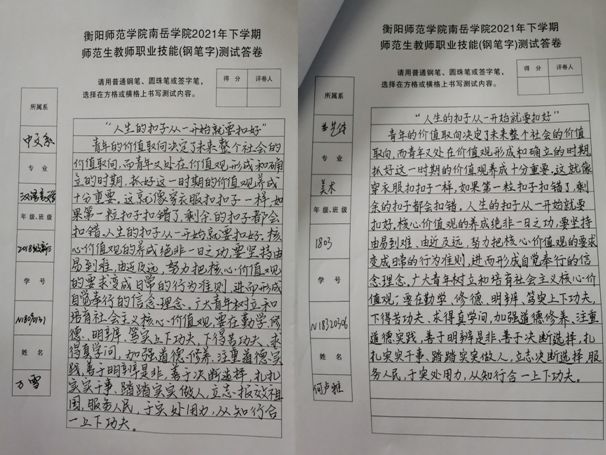 衡阳师范学院南岳学院2021年下学期
师范生教师职业技能(钢笔字)测试答卷
请用普通钢笔、圆珠笔或签字笔,
选择在方格或横格上书写测试内容。
得 分
评卷人
所属系
中文系
专 业
年 级、班 级
学 号
姓 名
万雪
“人生的扣子从一开始就要扣好”
青年的价值取向决定了未来整个社会的
价值取向,而青年又处在价值观形成和确
立的时期,抓好这一时期的价值观养成
十分重要。这就像穿衣服扣扣子一样,如
果第一粒扣子扣错了,剩余的扣子都会
扣错。人生的扣子从一开始就要扣好。核
心价值观的养成绝非一日之功,要坚持由
易到难、由近及远,努力把核心价值观
的要求变成日常的行为准则,进而形成
自觉奉行的信念理念。广大青年树立和
培育社会主义核心价值观,要在勤学、修
德、明辨、笃实上下功夫,下得苦功夫、求
得真学问,加强道德修养、注重道德实
践,善于明辨是非、善于决断选择,扎扎
实实干事、踏踏实实做人,立志报效祖
国、服务人民,于实处用力,从知行合
一上下功夫。
衡阳师范学院南岳学院2021年下学期
师范生教师职业技能(钢笔字)测试答卷
请用普通钢笔、圆珠笔或签字笔,
选择在方格或横格上书写测试内容。
得 分
评卷人
所属系
专 业
美术
年 级、班 级
1803
学 号
N18320306
姓 名
“人生的扣子从一开始就要扣好”
青年的价值取向决定了未来整个社会的价值
取向,而青年又处在价值观形成和确立的时期,
抓好这一时期的价值观养成十分重要。这就像
穿衣服扣扣子一样,如果第一粒扣子扣错了,剩
余的扣子都会扣错。人生的扣子从一开始就要
扣好。核心价值观的养成绝非一日之功,要坚持
由易到难、由近及远,努力把核心价值观的要求
变成日常的行为准则,进而形成自觉奉行的信
念理念。广大青年树立和培育社会主义核心价
值观,要在勤学、修德、明辨、笃实上下功夫,
下得苦功夫、求得真学问,加强道德修养、注重
道德实践,善于明辨是非、善于决断选择,扎
扎实实干事、踏踏实实做人,立志决断选择,服
务人民,于实处用力,从知行合一上下功夫。